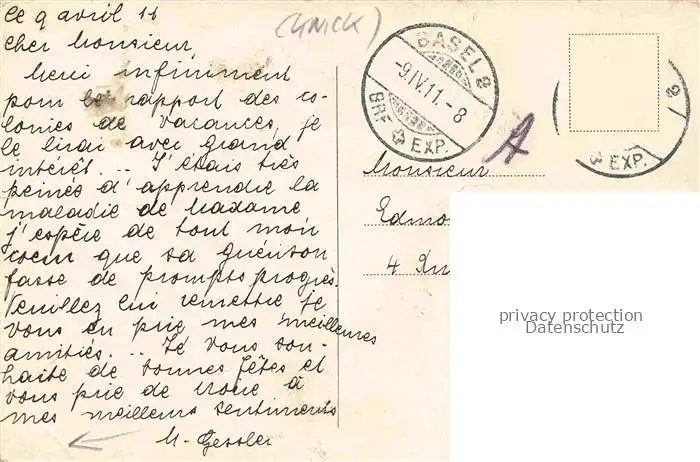 Ce 9 avril 11
Cher Monsieur,
Merci infiniment
pour le rapport des co-
lonies de vacances, je
le lirai avec grand
intérêt. .. J'étais très
peinés d'apprendre la
maladie de Madame
j'espère de tout mon
coeur que sa guérison
fasse de prompts progrès.
Veuillez lui remettre je
vous en prie mes meilleures
amitiés. .. Je vous sou-
haite de bonnes fêtes et
vous prie de croire à
mes meilleurs sentiments
M. Gessler
BASEL 2
-9.IV.11.-8
BRF. EXP.
A
2
EXP.
Monsieur
Edmo
4
privacy protection
Datenschutz